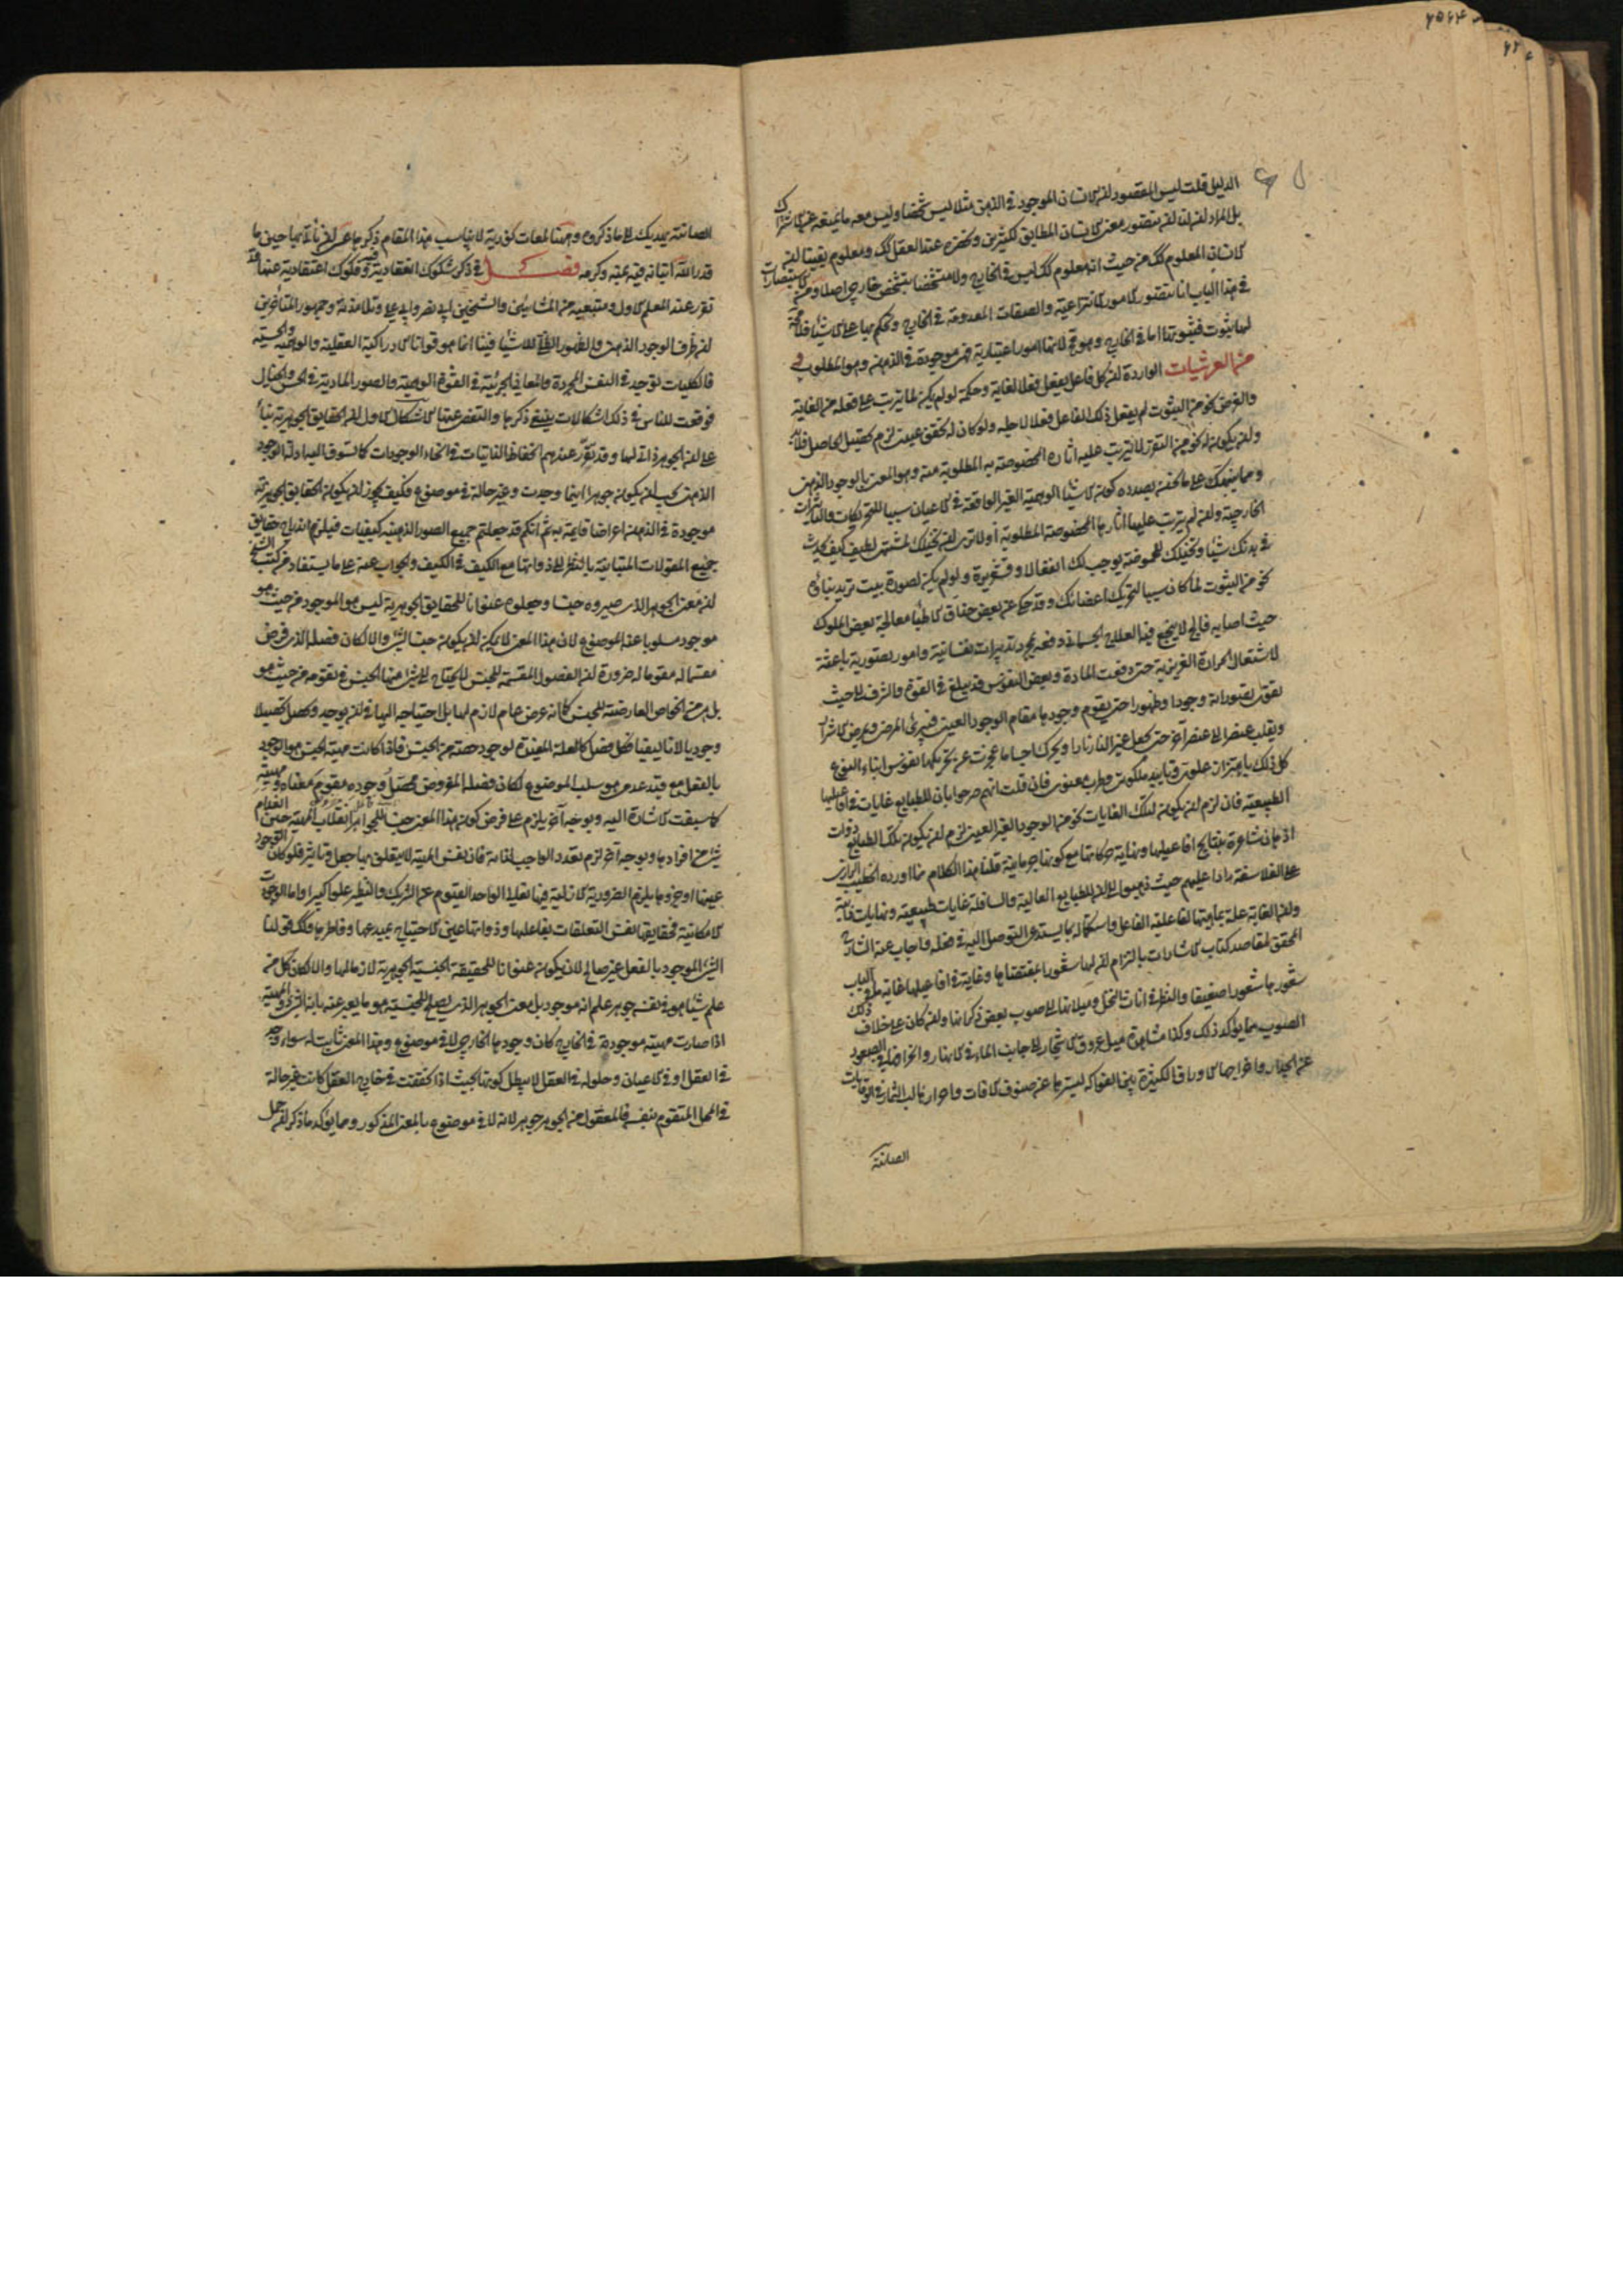 الدليل قلت ليس المقصود ان الانسان الموجود في الذهن مثلا ليس شخصا وليس معه ما يمنعه عن الاشتراك
بل المراد ان لنا ان نتصور معنى الانسان المطابق لكثيرين وكونه عند العقل كك ومعلوم يقينا ان
الانسان المعلوم كك من حيث انه معلوم كك ليس في الخارج ولا متشخصا بتشخص خارجي اصلا ومن الاستبصارات
في هذا الباب انا نتصور الامور الانتزاعية والصفات المعدومة في الخارج ونحكم بها على الاشياء فلا محة
لها ثبوت فثبوتها اما في الخارج وهو مح لانها امور اعتبارية فهي موجودة في الذهن وهو المطلوب و
من العرشيات الواردة ان كل فاعل يفعل فعلا لغاية وحكمة لو لم يكن لما يترتب على فعله من الغاية
والغرض نحو من الثبوت لم يفعل ذلك الفاعل فعلا لاجله ولو كان له تحقق عيني لزم تحصيل الحاصل فلابد
وان يكون له نحو من التقرر لا يترتب عليه اثاره المخصوصة به المطلوبة منه وهو المعنى بالوجود الذهني
ومما ينبهك على ما نحن بصدده كون الاشياء الوهمية الغير الواقعة في الاعيان سببا للتحريكات والتاثيرات
الخارجية وان لم يترتب عليها اثارها المخصوصة المطلوبة اولا ترى ان تخيلك لمشتهى لطيف كيف يحدث
في بدنك شيئا وتخيلك للحموضة يوجب لك انفعالا وقشعريرة ولو لم يكن لصورة بيت تريد بناءه
نحو من الثبوت لما كان سببا لتحريك اعضائك وقد حكي عن بعض حذاق الاطباء معالجة بعض الملوك
حيث اصابه فالج لا ينجع فيه العلاج الجسماني دفعه بمجرد تدبيرات نفسانية وامور تصورية باعثة
لاشتعال الحرارة الغريزية حتى دفعت المادة وبعض النفوس قد يبلغ في القوة والشرف الى حيث
يقوى تصوراته وجودا وظهورا حتى يقوم وجودها مقام الوجود العيني فيبرئ المرض ويمرض الاشرار
ويقلب عنصرا الى عنصر آخر حتى يجعل غير النار نارا ويحرك اجساما عجزت عن تحريكها نفوس ابناء النوع
كل ذلك باهتزاز علوي وتاييد ملكوتي وطرب معنوي فان قلت انهم صرحوا بان للطبايع غايات في افاعيلها
الطبيعية فان لزم ان يكون لتلك الغايات نحو من الوجود الغير العيني لزم ان يكون تلك الطبايع ذوات
اذهان شاعرة بنتايج افاعيلها ونهاية حركاتها مع كونها جرمانية قلنا هذا الكلام مما اورده الخطيب الرازي
على الفلاسفة رادا عليهم حيث ذهبوا الى ان للطبايع العالية والسافلة غايات طبيعية ونهايات ذاتية
وان الغاية علة بماهيتها لفاعلية الفاعل واستكماله بما يستدعي التوصل اليه في فعله واجاب عنه الشارح
المحقق لمقاصد كتاب الاشارات بالتزام ان لها شعورا بمقتضاها وغاية في افاعيلها غاية ما في الباب
شعورها شعورا ضعيفا والنظر في اناث النخل وميلانها الى صوب بعض ذكرانها وان كان على خلاف ذلك
الصوب مما يؤكد ذلك وكذا مشاهدة ميل عروق الاشجار الى جانب الماء في الانهار وانحرافها في الصعود
عن الجدار واخراجها الاوراق الكثيرة بين الفواكه ليسترها عن صنوف الافات واحراز لب الثمار في الوقايات
الصائنة
الصائنة يهديك الى ما ذكروه وهيهنا لمعات نورية لا يناسب هذا المقام ذكرها عسى ان نأتي بها حين ما
قدر الله اتيانه فيه بمنه وكرمه فصل في ذكر شكوك انعقادية وفيه فكوك اعتقادية عنها قد
تقرر عند المعلم الاول ومتبعيه من المشائين والشيخين ابي نصر وابي علي وتلامذته وجمهور المتأخرين
ان ظرف الوجود الذهني والظهور الظلي للاشياء فينا انما هو قوانا الادراكية العقلية والوهمية والحسية
فالكليات توجد في النفس المجردة والمعاني الجزئية في القوة الوهمية والصور المادية في الحس والخيال
فوقعت للناس في ذلك اشكالات ينبغي ذكرها والتفصي عنها الاشكال الاول ان الحقايق الجوهرية بناء
على ان الجوهر ذاتي لها وقد تقرر عندهم انحفاظ الذاتيات في انحاء الوجودات كما تسوق اليه ادلة الوجود
الذهني يجب ان يكون جوهرا اينما وجدت وغير حالة في موضوع فكيف يجوز ان يكون الحقايق الجوهرية
موجودة في الذهن اعراضا قايمة به ثم انكم قد جعلتم جميع الصور الذهنية كيفيات فيلزم اندراج حقايق
جميع المقولات المتباينة بالنظر الى ذواتها مع الكيف في الكيف والجواب عنه على ما يستفاد من كتب الشيخ
ان معنى الجوهر الذي صيروه جنسا وجعلوه عنوانا للحقايق الجوهرية ليس هو الموجود من حيث هو
موجود مسلوبا عنه الموضوع لان هذا المعنى لا يمكن ان يكون جنسا لشيء والا لكان فصله الذي فرض
مقسما له مقوما له ضرورة ان الفصول المقسمة للجنس لا يحتاج اليه شيء منها الجنس في تقومه من حيث هو
بل هي من الخواص العارضة للجنس كما انه عرض عام لازم لها بل احتياجه اليها في ان يوجد ويحصل تحصيلا
وجوديا لا تاليفيا فكل فصل كالعلة المفيدة لوجود حصة من الجنس فاذا كانت مهية الجنس هو الوجود
بالفعل مع قيد عدمي هو سلب الموضوع لكان فصله المفروض محصل وجوده مقوم معناه ومهيته
كما سبقت الاشارة اليه وبوجه آخر يلزم على فرض كون هذا المعنى جنسا للجواهر انقلاب المهية حين انعدام
شيء من افرادها وبوجه آخر لزم تعدد الواجب لذاته فان نفس المهية لا يتعلق بها جعل وتاثير فلو كان الوجود
عينها او جزءها يلزم الضرورية الازلية فيها تعالى الواحد القيوم عن الشريك والنظير علوا كبيرا واما الوجودات
الامكانية فحقايقها نفس التعلقات بفاعلها وذواتها عين الاحتياج بمبدعها وفاطرها وكك قولنا
الشيء الموجود بالفعل غير صالح لان يكون عنوانا للحقيقة الجنسية الجوهرية لازما لها والا لكان كل من
علم شيئا هو في نفسه جوهر علم انه موجود بل معنى الجوهر الذي يصلح للجنسية هو ما يعبر عنه بانه الشيء ذو المهية
اذا صارت مهيته موجودة في الخارج كان وجودها الخارجي لا في موضوع وهذا المعنى ثابت له سواء وجد
في العقل او في الاعيان وحلوله في العقل لا يبطل كونها بحيث اذا تحققت في خارج العقل كانت غير حالة
في المحل المتقوم بنفسه فالمعقول من الجوهر جوهر لانه لا في موضوع بالمعنى المذكور ومما يؤكد ما ذكر ان حمل